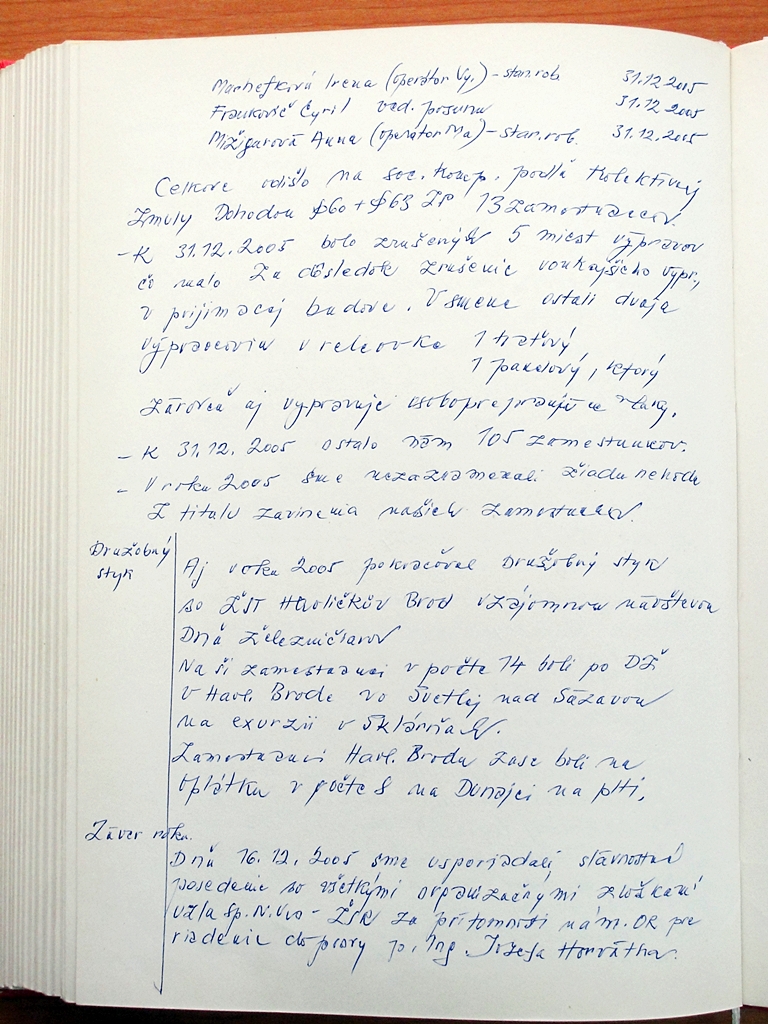 Irena (operátor Vy.) - stan.rob. 31.12.2005
Frankovič Cyril ved. posunu 31.12.2005
Mižigarová Anna (operátor Ma) - stan.rob. 31.12.2005
Celkove odišlo na soc. komp. podľa Kolektívnej
Zmluvy Dohodou §60 + §63 ZP 13 zamestnancov.
- K 31.12.2005 bolo zrušených 5 miest výpravcov
čo malo za dôsledok zrušenie vonkajšieho výpr.,
v prijímacej budove. V smene ostali dvaja
výpravcovia v releovke 1 traťový
1 panelový, ktorý
zároveň aj vypravuje osoboprepravujúce vlaky.
- K 31.12.2005 ostalo nám 105 zamestnankov.
- V roku 2005 sme nezaznamenali žiadu nehodu
Z titulu zavinenia našich zamestnancov.
Družobný
styk
Aj v roku 2005 pokračoval Družobný styk
so ŽST Havlíčkův Brod vzájomnou návštevou
Dňa železničiarov
Naši zamestnanci v počte 14 boli po DŽ
v Havl. Brode vo Svetlej nad Sázavou
na exurzii v Sklárňach.
Zamestnanci Havl. Brodu zase boli na
oplátku v počte 8 na Dunajci na plti.
Záver roku.
Dňa 16.12.2005 sme usporiadali slávnostné
posedenie so všetkými organizačnými zložkami
uzla Sp.N.Ves - ŽSR za prítomnosti nám. OR pre
riadenie dopravy p. Ing. Jozefa Horvátha.